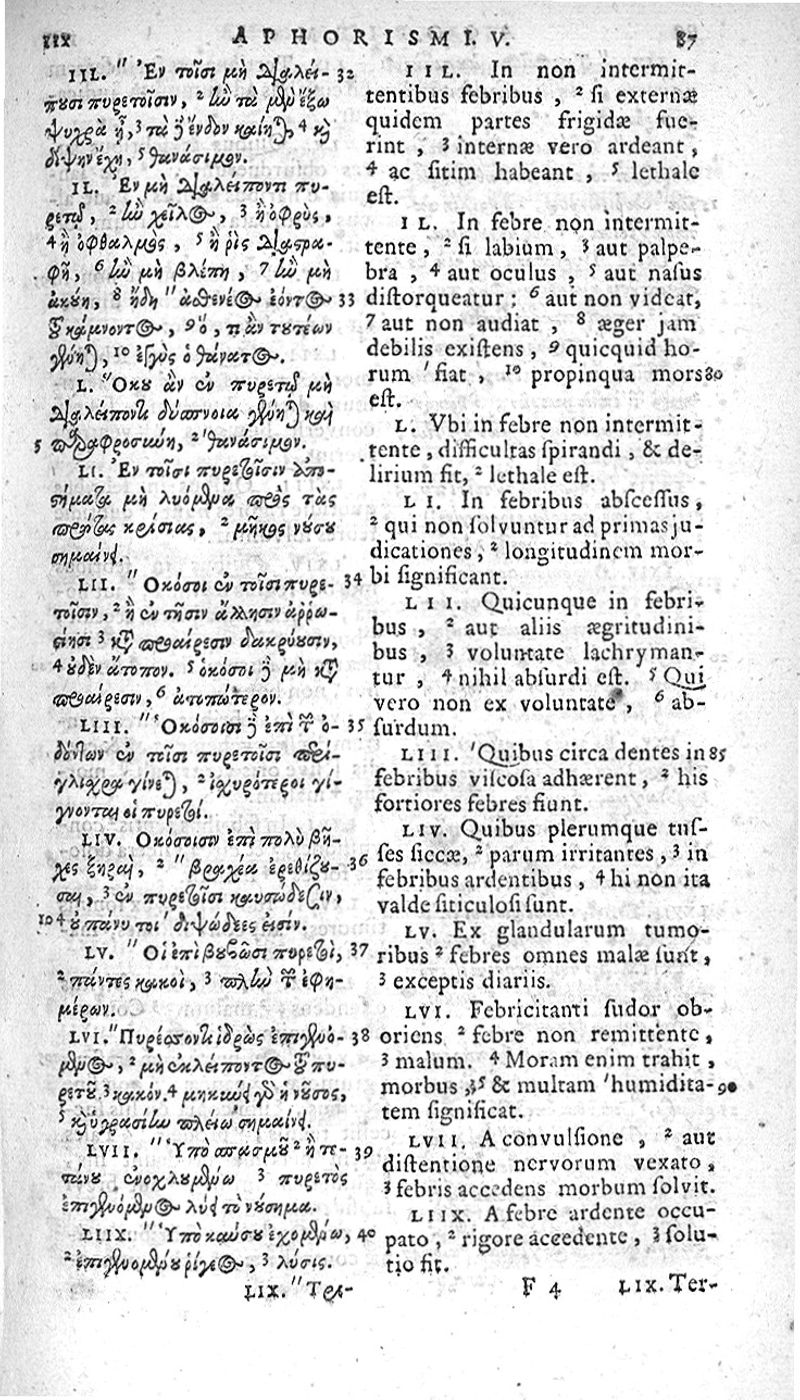 IIX APHORISMI. V. 87
IIL. " Ἐν τοῖσι μὴ διαλεί- 32
πουσι πυρετοῖσιν, ² ἢν τὰ μὲν ἔξω
ψυχρὰ ᾖ, ³ τὰ δὲ ἔνδον καίηται, ⁴ καὶ
δίψην ἔχῃ, ⁵ θανάσιμον.
IL. Ἐν μὴ διαλείποντι πυ-
ρετῷ, ² ἢν χεῖλος, ³ ἢ ὀφρὺς,
4 ἢ ὀφθαλμὸς, ⁵ ἢ ῥὶς διαστρα-
φῇ, ⁶ ἢν μὴ βλέπῃ, ⁷ ἢν μὴ
ἀκούῃ, ⁸ ἤδη " ἀσθενέος ἐόντος 33
τοῦ κάμνοντος, ⁹ ὅ, τι ἂν τουτέων
γένηται, ¹⁰ ἐγγὺς ὁ θάνατος.
L. "Ὅκου ἂν ἐν πυρετῷ μὴ
διαλείποντι δύσπνοια γένηται καὶ
5 παραφροσύνη, ² θανάσιμον.
LI. Ἐν τοῖσι πυρετοῖσιν ἀπο-
στήματα μὴ λυόμενα πρὸς τὰς
πρώτας κρίσιας, ² μῆκος νούσου
σημαίνει.
LII. " Ὁκόσοι ἐν τοῖσι πυρε- 34
τοῖσιν, ² ἢ ἐν τῇσιν ἄλλῃσιν ἀῤῥω-
στίῃσι ³ κατὰ προαίρεσιν δακρύουσιν,
4 οὐδὲν ἄτοπον. ⁵ ὁκόσοι δὲ μὴ κατὰ
προαίρεσιν, ⁶ ἀτοπώτερον.
LIII. "Ὁκόσοισι δὲ ἐπὶ τῶν ὀ- 35
δόντων ἐν τοῖσι πυρετοῖσι περί-
γλισχρα γίνεται, ² ἰσχυρότεροι γί-
γνονται οἱ πυρετοί.
LIV. Ὁκόσοισιν ἐπὶ πολὺ βῆ-
χες ξηραὶ, ² " βραχέα ἐρεθίζου- 36
σαι, ³ ἐν πυρετοῖσι καυσώδεσιν,
10 4 οὐ πάνυ τοι ' διψώδεες εἰσίν.
LV. " Οἱ ἐπὶ βουβῶσι πυρετοὶ, 37
² πάντες κακοὶ, ³ πλὴν τῶν ἐφη-
μέρων.
LVI. " Πυρέσσοντι ἱδρὼς ἐπιγενό- 38
μενος, ² μὴ ἐκλείποντος τοῦ πυ-
ρετοῦ ³ κακόν. ⁴ μηκύνει γὰρ ἡ νοῦσος,
5 καὶ ὑγρασίην πλείω σημαίνει.
LVII. "Ὑπὸ σπασμοῦ ² ἢ τε- 39
τάνου ἐνοχλουμένῳ ³ πυρετὸς
ἐπιγενόμενος λύει τὸ νούσημα.
LIIX. "Ὑπὸ καύσου ἐχομένῳ, 40
² ἐπιγενομένου ῥίγεος, ³ λύσις.
LIX. " Τρι-
IIL. In non intermit-
tentibus febribus, ² si externæ
quidem partes frigidæ fue-
rint, ³ internæ vero ardeant,
4 ac sitim habeant, ⁵ lethale
est.
IL. In febre non intermit-
tente, ² si labium, ³ aut palpe-
bra, ⁴ aut oculus, ⁵ aut nasus
distorqueatur; ⁶ aut non videat,
7 aut non audiat, ⁸ æger jam
debilis existens, ⁹ quicquid ho-
rum ' fiat, ¹⁰ propinqua mors 80
est.
L. Vbi in febre non intermit-
tente, difficultas spirandi, & de-
lirium fit, ² lethale est.
LI. In febribus abscessus,
² qui non solvuntur ad primas ju-
dicationes, ² longitudinem mor-
bi significant.
LII. Quicunque in febri-
bus, ² aut aliis ægritudini-
bus, ³ voluntate lachryman-
tur, ⁴ nihil absurdi est. ⁵ Qui
vero non ex voluntate, ⁶ ab-
surdum.
LIII. 'Quibus circa dentes in 85
febribus viscosa adhærent, ² his
fortiores febres fiunt.
LIV. Quibus plerumque tus-
ses siccæ, ² parum irritantes, ³ in
febribus ardentibus, ⁴ hi non ita
valde siticulosi sunt.
LV. Ex glandularum tumo-
ribus ² febres omnes malæ sunt,
3 exceptis diariis.
LVI. Febricitanti sudor ob-
oriens ² febre non remittente,
3 malum. ⁴ Moram enim trahit,
morbus, ⁵ & multam 'humidita- 90
tem significat.
LVII. A convulsione, ² aut
distentione nervorum vexato,
3 febris accedens morbum solvit.
LIIX. A febre ardente occu-
pato, ² rigore accedente, ³ solu-
tio fit.
F 4 LIX. Ter-